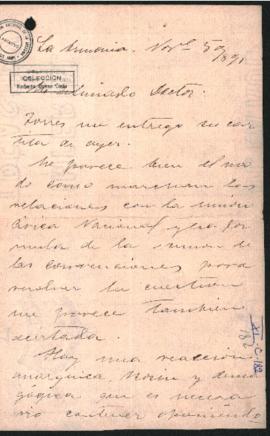 La Armonia. Nov.e 5 de
1891
COLECCION
Mi estimado Doctor:
Torres me entregó su car-
tita de ayer.
Me parece bien el mo-
do como marchan las
relaciones con la Unión
Cívica Nacional y la for-
mula de la reunion de
las convenciones para
resolver la cuestion
me parece tambien
acertada.
Hay una reaccion
anarquica, y dema-
gógica que es necesa-
rio contener oponiendo